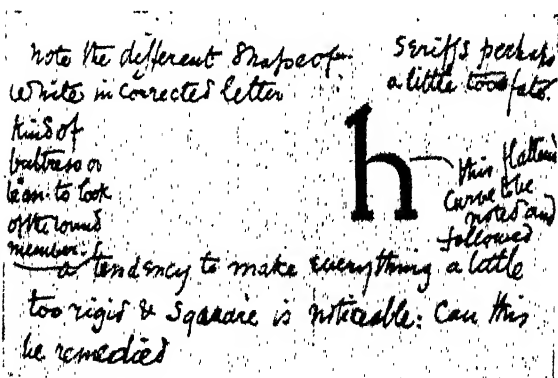 note the different shape of
white in corrected letter
seriffs perhaps
a little too fat.
kind of
buttress or
lean-to look
of the round
member.
h
this flattened
curve to be
noted and
followed
a tendency to make everything a little
too rigid & square is noticeable: Can this
be remedied